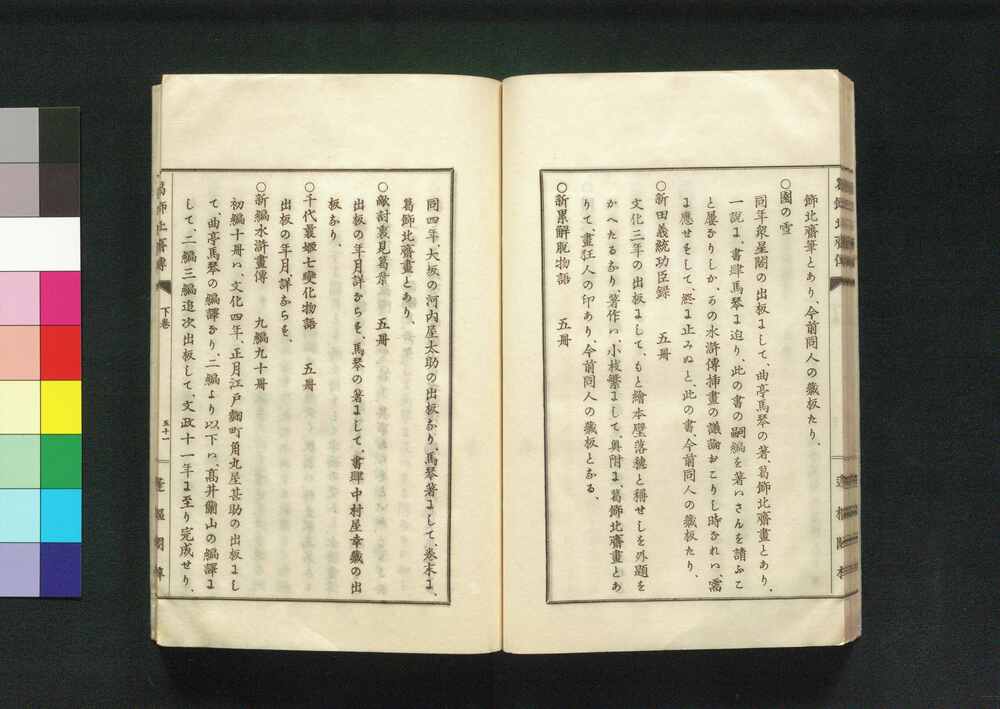 飾北齋筆とあり、今前同人の藏板たり、
○園の雪
同年衆星閣の出板にして、曲亭馬琴の著、葛飾北齋畫とあり、
一説に、書肆馬琴に迫り、此の書の嗣編を著はさんを請ふこ
と屢なりしか、かの水滸傳挿畫の議論おこりし時なれハ、需
に應せをして、終に止みぬと、此の書、今前同人の藏板たり、
○新田義統功臣録　五冊
文化三年の出板にして、もと繪本璧落穗と稱せしを外題を
かへたるなり、著作ハ、小枝繁にして、奥附に、葛飾北齋畫とあ
りて、畫狂人の印あり、今前同人の藏板となる、
○新累解脱物語　五冊
同四年、大坂の河内屋太助の出板なり、馬琴著にして、卷末に、
葛飾北齋畫とあり、
○敵討裏見葛葉　五冊
出板の年月詳ならを、馬琴の著にして、書肆中村屋幸藏の出
板なり、
○千代曩媛七變化物語　五冊
出板の年月詳ならを、
○新編水滸畫傳　九編九十冊
初編十冊ハ、文化四年、正月江戸麹町角丸屋甚助の出板にし
て、曲亭馬琴の編譯なり、二編より以下ハ、高井蘭山の編譯に
して、二編三編追次出板して、文政十一年に至り完成せり、
葛飾北齋傳
下卷
五十一